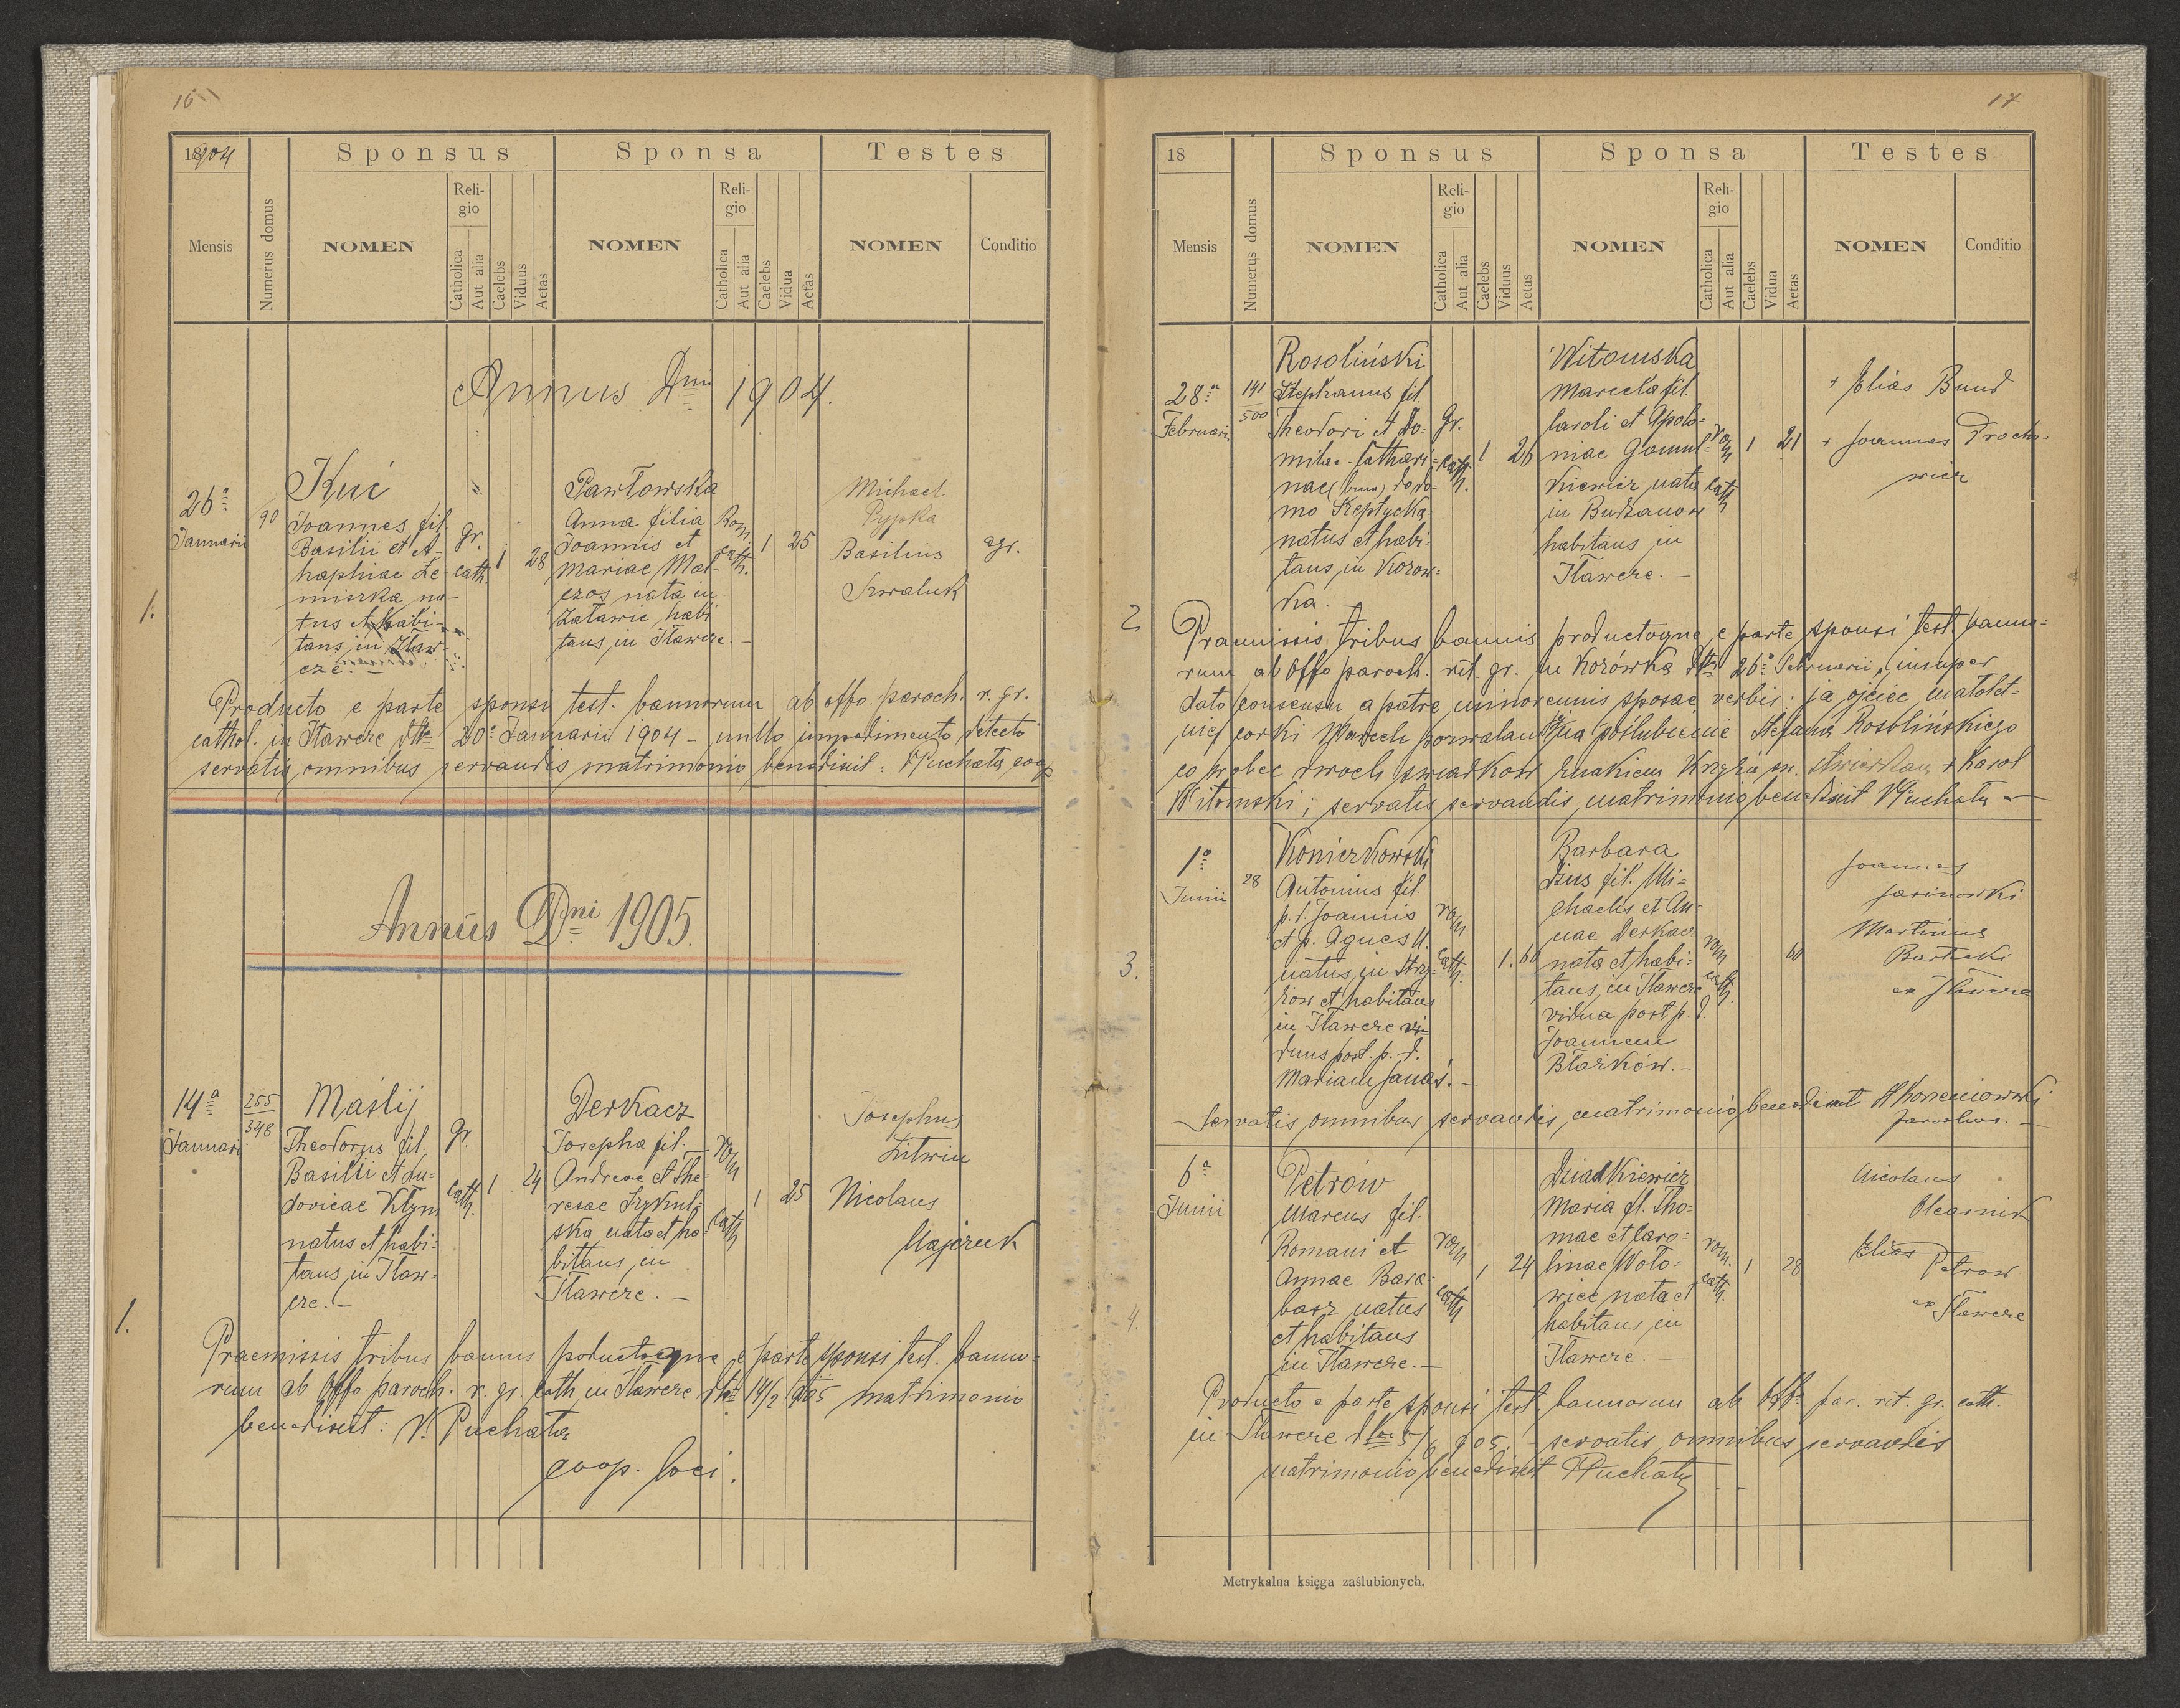 16
1904
Sponsus
Sponsa
Testes
Mensis
Numerus domus
NOMEN
Religio
Catholica
Aut alia
Caelebs
Viduus
Aetas
NOMEN
Religio
Catholica
Aut alia
Caelebs
Vidua
Aetas
NOMEN
Conditio
Annus Dni 1904.
1.
26a
Januarii
90
Kuć
Joannes fil.
Basilii et A-
haphiae Le
miszka na-
tus et habi-
tans in Iław-
cze.-
gr.
cath
1
28
Pawłowska
Anna filia
Joannis et
Mariae Mal-
czos nata in
Załawie, habi
tans in Iławcze.-
Rom
cath.
1
25
Michael
Pypka
Basilius
Szwaluk
agr.
Producto e parte sponsi test. bannorum ab offo. paroch. r. gr.
cathol. in Iławcze dtto 20a Januarii 1904 - nullo impedimento detecto
servatis omnibus servandis matrimonio benedixit: Puchała coop
Annus Dni 1905.
1.
14a
Januarii
255
348
Maślij
Theodorus fil.
Basilii et Lu-
dovicae Kłym
natus et habi-
tans in Iław-
cze.-
gr.
cath.
1
24
Derkacz
Josepha fil.
Andreae et The-
resae Szykul-
ska nata et ha-
bitans in
Iławcze.-
rom
cath
1
25
Josephus
Litwin
Nicolaus
Majczuk
Praemissis tribus bannis productoque e parte sponsi test. banno-
rum ab Offo. paroch. r. gr. cath in Iławcze dto 14/2 905 matrimonio
benedixit: V. Puchała
coop. loci.
17
18
Sponsus
Sponsa
Testes
Mensis
Numerus domus
NOMEN
Religio
Catholica
Aut alia
Caelebs
Viduus
Aetas
NOMEN
Religio
Catholica
Aut alia
Caelebs
Vidua
Aetas
NOMEN
Conditio
2
28a
Februarii
141
500
Rosoliński
Stephanus fil.
Theodori et Do-
milae Cathari-
nae
mo Szeptycka
natus et habi-
tans in Kozow-
ka.-
Gr.
cath.
1
26
Witomska
Marcela fil.
Caroli et Apolo-
niae Gomul-
kiewicz nata
in Budzanow
habitans in
Iławcze.-
rom
cath
1
21
+ Elias Bund
+ Joannes Procho-
wicz
Praemissis tribus bannis productoque e parte sponsi test. banno-
rum ab Offo paroch. rit. gr. in Kozówka dto 26a Februarii, insuper
dato consensu a patre minorennis sposae verbis: ja ojciec małolet-
niej corki Marceli pozwalam jej na poślubienie Stefana Rosolińskiego
co wobec dwoch swiadkow znakiem Krzyża św. stwierdzam + Karol
Witomski; servatis servandis matrimonio benedixit Puchała -
3.
1a
Junii
28
Konierkowski
Antonius fil.
p. d. Joannis
et p. Agnes U.
natus in Strz-
żow et habitans
in Iławcze vi-
duus post. p. d.
Mariam Janas.-
rom
cath.
1.
60
Barbara
Dzus fil. Mi-
chaelis et An-
nae Derkacz
nata et habi-
tans in Iławcze
vidua post p. d.
Joannem
Błażków.-
rom
cath.
60
Joannes
Jasinowski
Martinus
Bartecki
ex Iławcze
Servatis omnibus servandis matrimonio benedixit Korzeniowski
parochus.
4.
6a
Junii
Petrów
Marcus fil.
Romani et
Annae Bara-
basz natus
et habitans
in Iławcze.-
rom
cath
1
24
Dziadkiewicz
Maria fl. Tho-
mae et Caro-
linae Woło-
wiec nata et
habitans in
Iławcze.
rom.
cath.
1
28
Nicolaus
Olearnik
Elias
Petrow
ex Iławcze
Producto e parte sponsi test bannorum ab Offo par. rit. gr. cath.
in Iławcze dto 5/6 905. servatis omnibus servandis
matrimonio benedixit Puchała
Metrykalna księga zaślubionych.